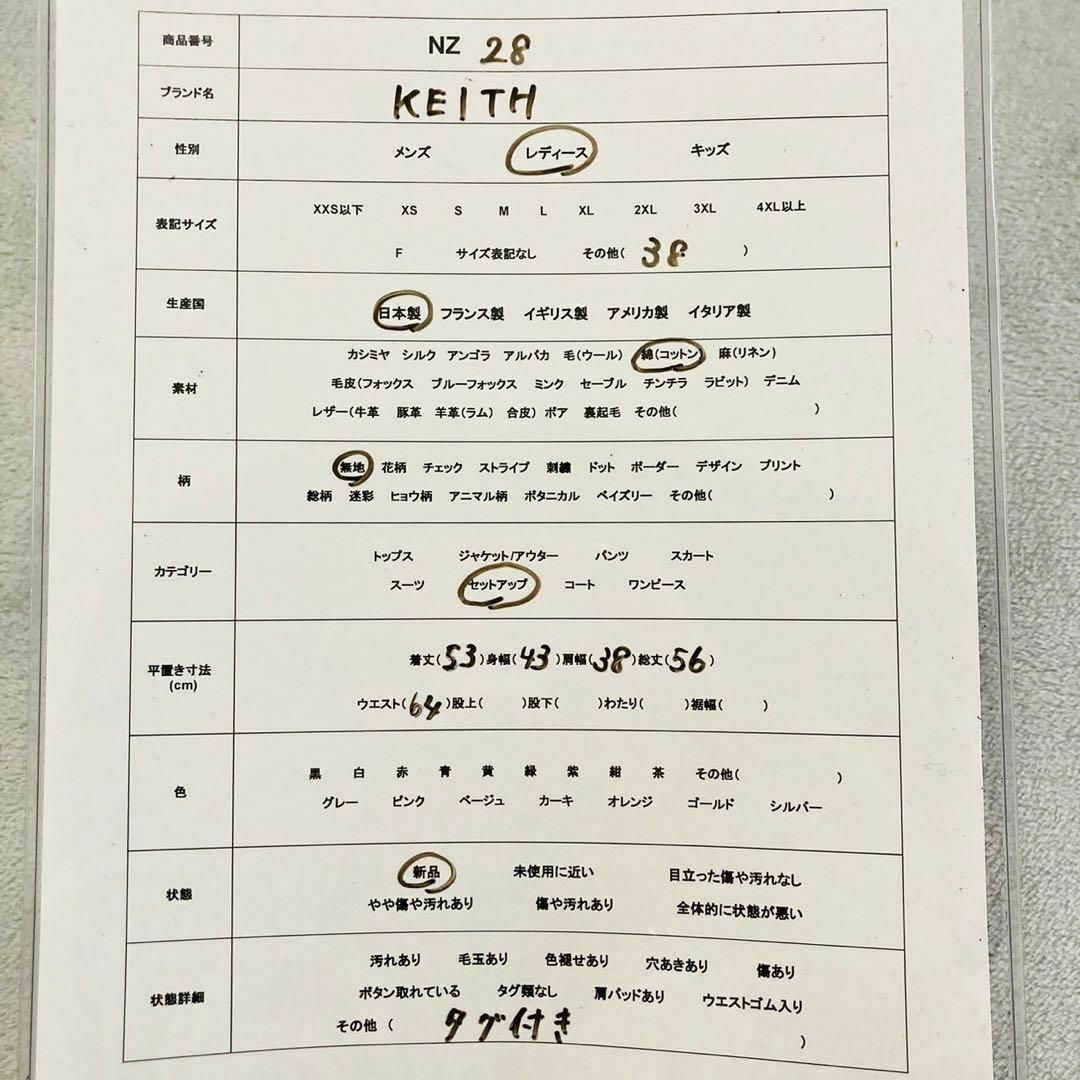 商品番号 NZ 28
ブランド名 KEITH
性別 メンズ レディース キッズ
表記サイズ
XXS以下 XS S M L XL 2XL 3XL 4XL以上
F サイズ表記なし その他( 38 )
生産国 日本製 フランス製 イギリス製 アメリカ製 イタリア製
素材
カシミヤ シルク アンゴラ アルパカ 毛(ウール) 綿(コットン) 麻(リネン)
毛皮(フォックス ブルーフォックス ミンク セーブル チンチラ ラビット) デニム
レザー(牛革 豚革 羊革(ラム) 合皮) ボア 裏起毛 その他( )
柄
無地 花柄 チェック ストライプ 刺繍 ドット ボーダー デザイン プリント
総柄 迷彩 ヒョウ柄 アニマル柄 ボタニカル ペイズリー その他( )
カテゴリー
トップス ジャケット/アウター パンツ スカート
スーツ セットアップ コート ワンピース
平置き寸法
(cm)
着丈(53)身幅(43)肩幅(38)総丈(56)
ウエスト(64)股上( )股下( )わたり( )裾幅( )
色
黒 白 赤 青 黄 緑 紫 紺 茶 その他( )
グレー ピンク ベージュ カーキ オレンジ ゴールド シルバー
状態
新品 未使用に近い 目立った傷や汚れなし
やや傷や汚れあり 傷や汚れあり 全体的に状態が悪い
状態詳細
汚れあり 毛玉あり 色褪せあり 穴あきあり 傷あり
ボタン取れている タグ類なし 肩パッドあり ウエストゴム入り
その他 ( タグ付き )